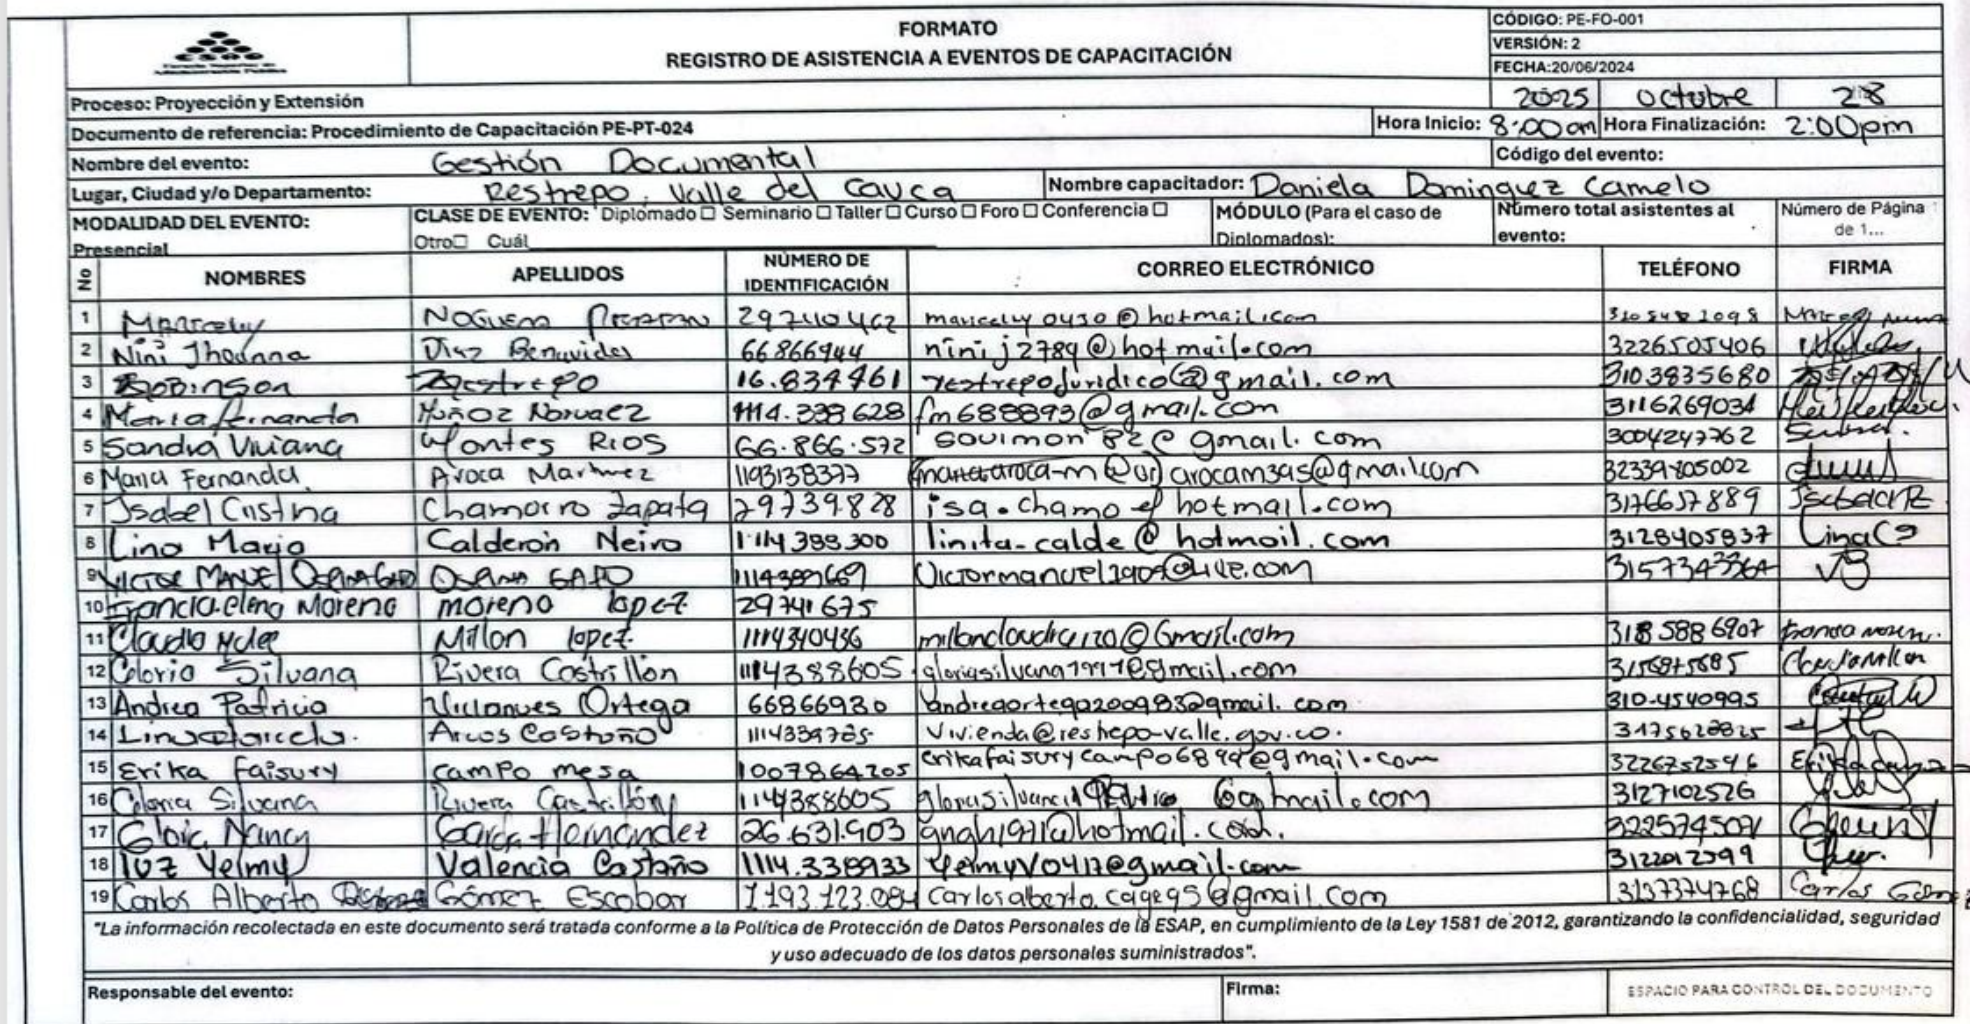 FORMATO
REGISTRO DE ASISTENCIA A EVENTOS DE CAPACITACIÓN
CÓDIGO: PE-FO-001
VERSIÓN: 2
FECHA:20/06/2024
Proceso: Proyección y Extensión 2025 octubre 28
Documento de referencia: Procedimiento de Capacitación PE-PT-024 Hora Inicio: 8:00am Hora Finalización: 2:00pm
Nombre del evento: Gestión Documental Código del evento:
Lugar, Ciudad y/o Departamento: Restrepo, Valle del Cauca Nombre capacitador: Daniela Dominguez Camelo
MODALIDAD DEL EVENTO: Presencial
CLASE DE EVENTO: Diplomado □ Seminario □ Taller □ Curso □ Foro □ Conferencia □
Otro□ Cuál
MÓDULO (Para el caso de Diplomados):
Número total asistentes al evento:
Número de Página de 1...
No NOMBRES APELLIDOS NÚMERO DE IDENTIFICACIÓN CORREO ELECTRÓNICO TELÉFONO FIRMA
1 Maricely Noguera maricely0430@hotmail.com
2 Nini Jhoanna Diaz Benavides 66866944 ninij2789@hotmail.com 3226505406
3 Robinson Restrepo 16.834461 restrepojuridico@gmail.com 3103835680
4 Maria fernanda Muñoz Narvaez 1114.338628 fm688893@gmail.com 3116269034
5 Sandra Viviana Montes Rios 66.866.572 savimon82@gmail.com 3004247762
6 Maria Fernanda Aroca Martinez 1193138377 arocam395@gmail.com 32339805002
7 Isabel Cristina Chamorro Zapata 29739828 isa.chamo@hotmail.com 3176657889
8 Lina Maria Calderon Neira 1114388300 linita-calde@hotmail.com 3128405837 Lina C
9 VICTOR MANUEL OSPINA 1114389669 Victormanuel1909@live.com
10 Francia elena Moreno moreno lopez 29741675
11 Claudia Millan lopez 1114340436 millanclaudia120@Gmail.com 3185886907
12 Gloria Silvana Rivera Castrillon 1114388605 gloriasilvana1997@gmail.com 3156875685
13 Andrea Patricia Ortega 66866980 andreaortega200983@gmail.com 310-4540995
14 Arcos Castaño 1114339785 vivienda@restrepo-valle.gov.co.
15 Erika Faisury campo mesa 1007864205 erikafaisurycampo689@gmail.com 3226752546
16 Gloria Silvana Rivera Castrillón 1114388605 3127102526
17 Gloria Nancy Garcia Hernandez 26.631.903 gngh1971@hotmail.com. 3225745071
18 luz Yelmy Valencia Castaño 1114.338933 Yelmyv0417@gmail.com 3122012599
19 Carlos Alberto Gómez Escobar 1.193.123.084 carlosalberto.cage95@gmail.com 3137374768 Carlos Gómez
"La información recolectada en este documento será tratada conforme a la Política de Protección de Datos Personales de la ESAP, en cumplimiento de la Ley 1581 de 2012, garantizando la confidencialidad, seguridad
y uso adecuado de los datos personales suministrados".
Responsable del evento: Firma: ESPACIO PARA CONTROL DEL DOCUMENTO